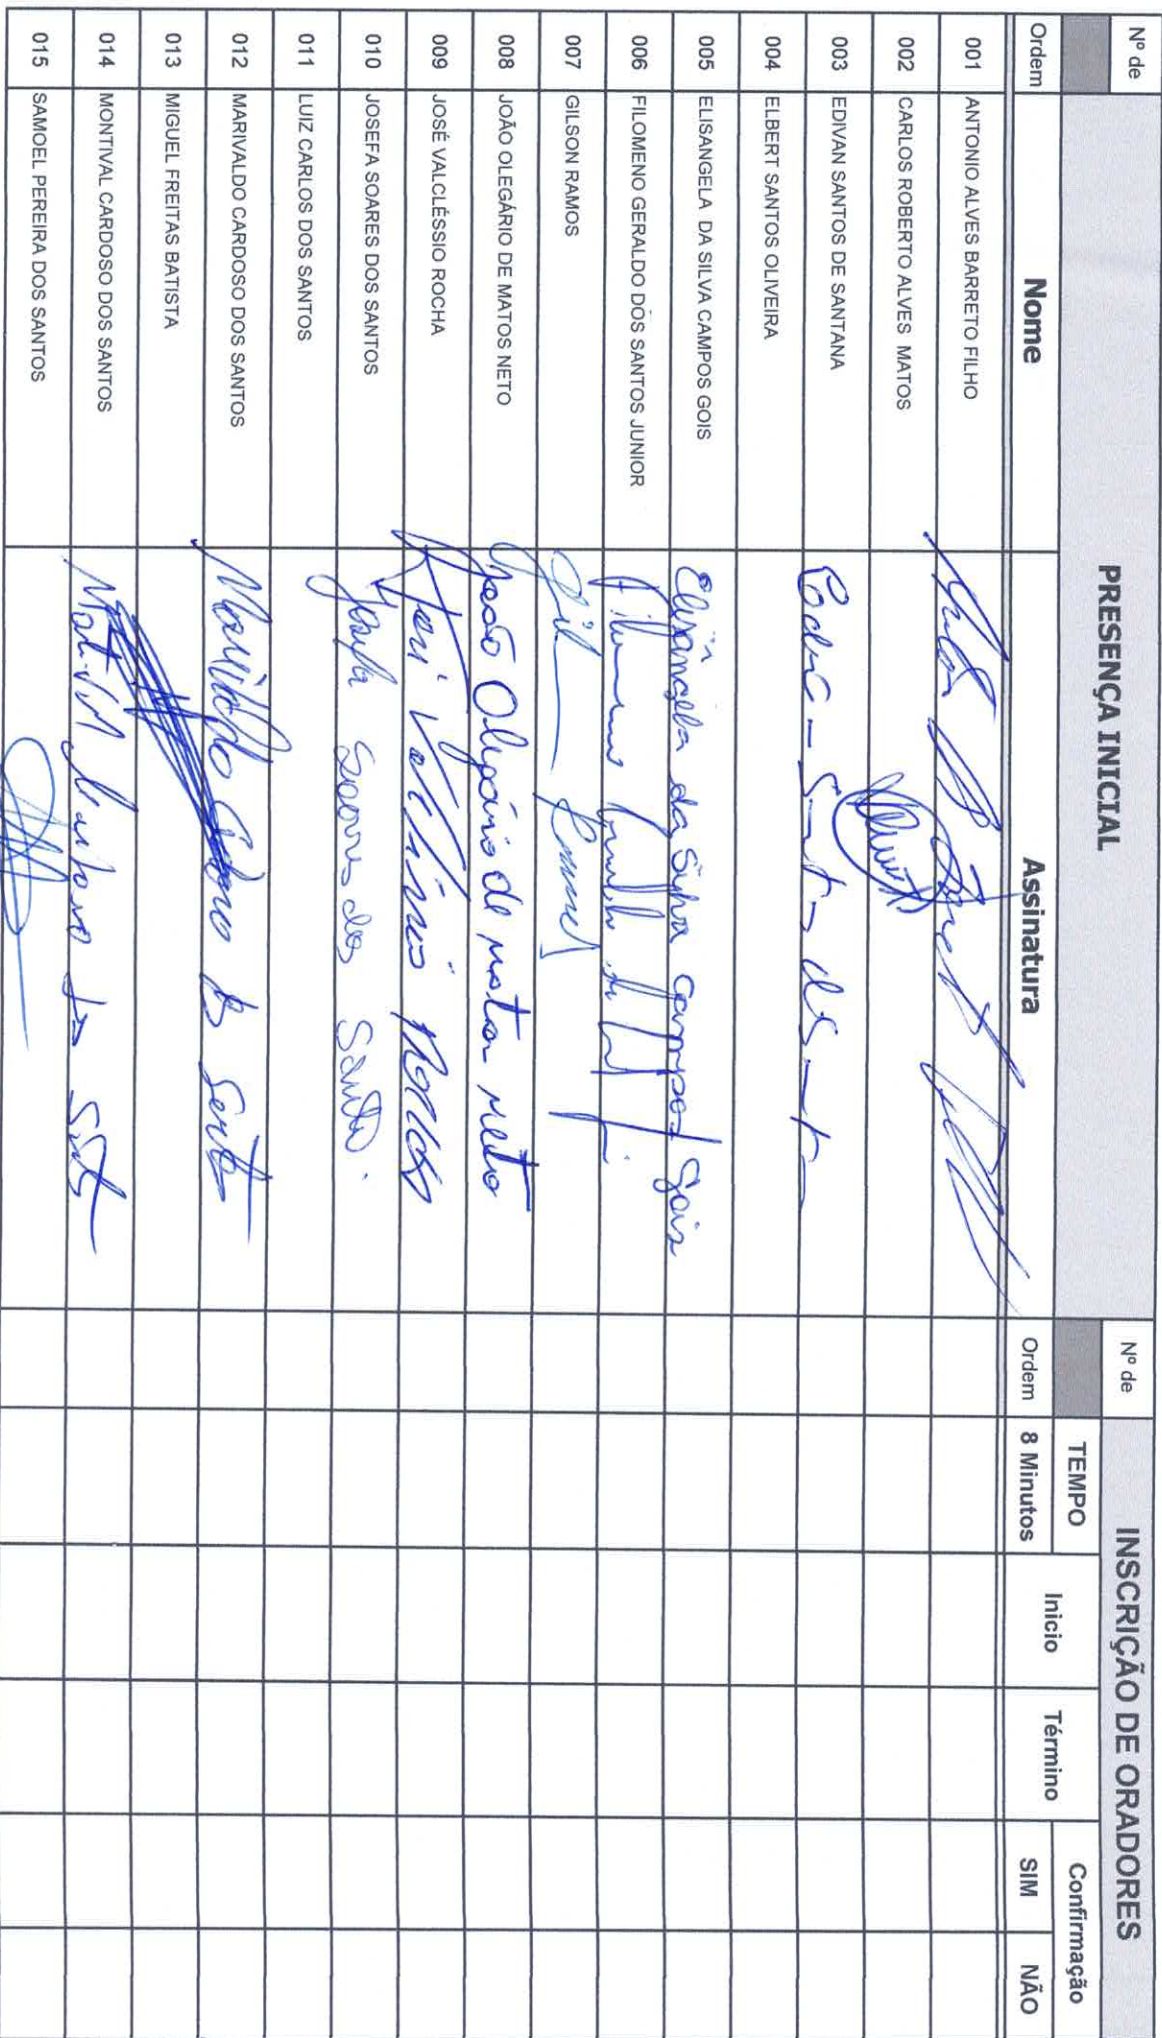 Nº de
PRESENÇA INICIAL
Nº de
INSCRIÇÃO DE ORADORES
Ordem
Nome
Assinatura
Ordem
TEMPO
8 Minutos
Inicio
Término
Confirmação
SIM
NÃO
001 ANTONIO ALVES BARRETO FILHO
002 CARLOS ROBERTO ALVES MATOS
003 EDIVAN SANTOS DE SANTANA
004 ELBERT SANTOS OLIVEIRA
005 ELISANGELA DA SILVA CAMPOS GOIS Elisangela da Silva Campos Gois
006 FILOMENO GERALDO DOS SANTOS JUNIOR
007 GILSON RAMOS
008 JOÃO OLEGÁRIO DE MATOS NETO João Olegário de matos neto
009 JOSÉ VALCLÉSSIO ROCHA
010 JOSEFA SOARES DOS SANTOS Josefa Soares dos Santos
011 LUIZ CARLOS DOS SANTOS
012 MARIVALDO CARDOSO DOS SANTOS
013 MIGUEL FREITAS BATISTA
014 MONTIVAL CARDOSO DOS SANTOS
015 SAMOEL PEREIRA DOS SANTOS